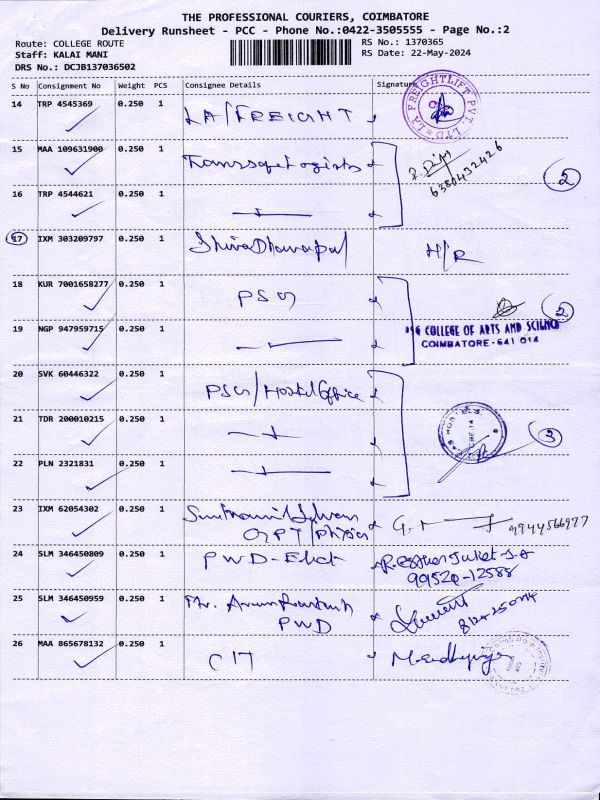 THE PROFESSIONAL COURIERS, COIMBATORE
Delivery Runsheet - PCC - Phone No.:0422-3505555 - Page No.:2
Route: COLLEGE ROUTE
Staff: KALAI MANI
DRS No.: DCJB137036502
RS No.: 1370365
RS Date: 22-May-2024
S No Consignment No Weight PCS Consignee Details Signature
14 TRP 4545369 0.250 1 LA/FREIGHT
LA FREIGHTLIFT PVT. LTD
15 MAA 109631900 0.250 1
6380432426
2
16 TRP 4544621 0.250 1
17 IXM 303209797 0.250 1 H/R
18 KUR 7001658277 0.250 1 PSG
2
PSG COLLEGE OF ARTS AND SCIENCE
COIMBATORE - 641 014
19 NGP 947959715 0.250 1
20 SVK 60446322 0.250 1 PSG/Hostel Office
21 TDR 200010215 0.250 1
3
22 PLN 2321831 0.250 1
23 IXM 62054302 0.250 1
9944566977
24 SLM 346450809 0.250 1 PWD-Elect
99520-12588
25 SLM 346450959 0.250 1
PWD
26 MAA 865678132 0.250 1 CIT